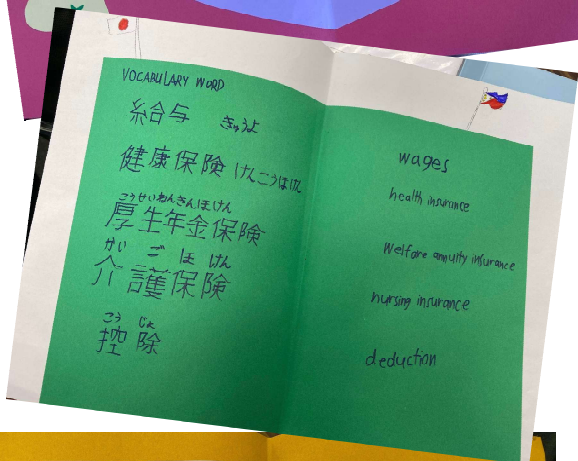 VOCABULARY WORD
給与 きゅうよ
健康保険 けんこうほけん
こうせいねんきんほけん
厚生年金保険
かい ご ほ けん
介護保険
こう じょ
控除
wages
health insurance
Welfare annuity insurance
nursing insurance
deduction